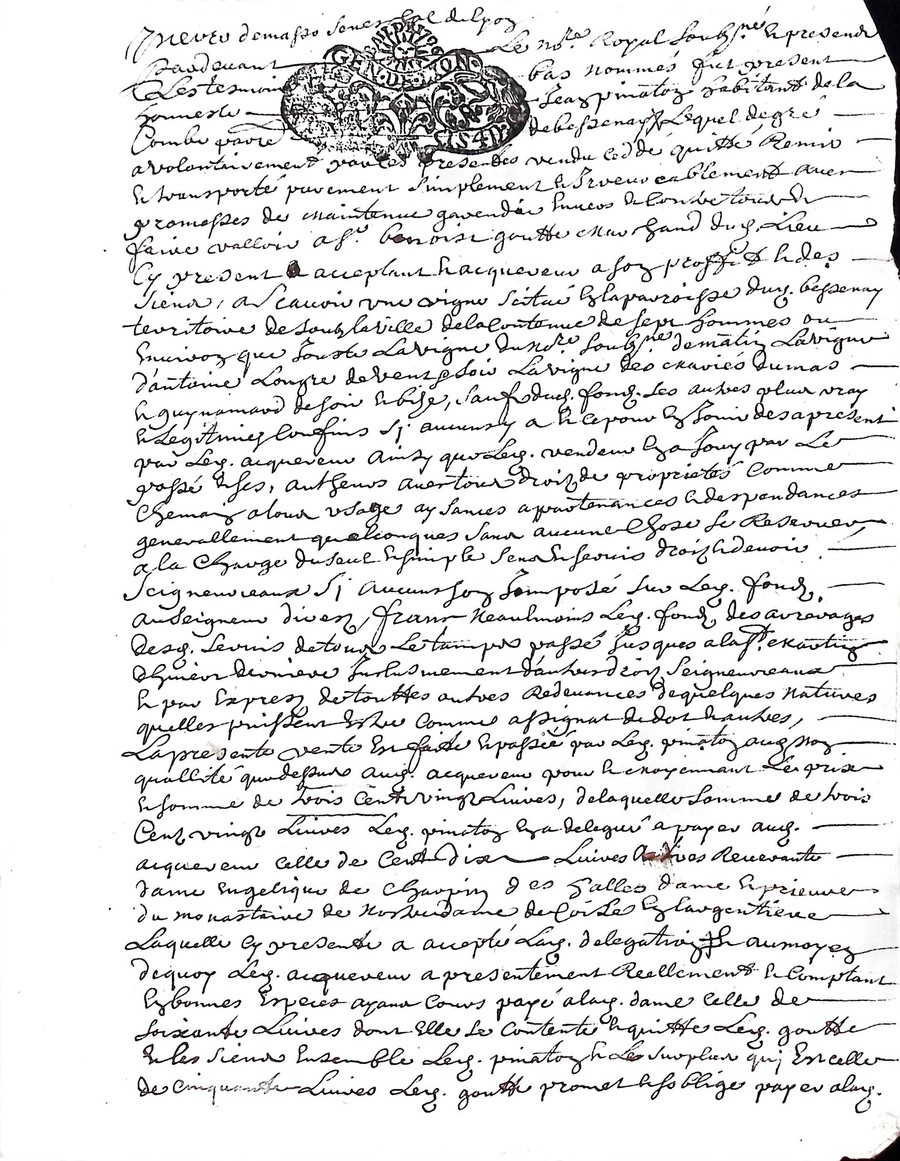 GEN. DE LYON.
Pardevant Le no.re Royal soubs.né & presence
& Les tesmoins bas nommés fut present
honneste Jean pinatoz habitant de la
Combe parr.e de bessenay Lequel de gré
a volontairement par ces presentes vendu ced de quitté Remis
& transporté purement simplement & Irrevocablement avec
promesses de maintenue garendie envers & Contre tous &
faire valloir a s.r benoist goutte marchand dud. Lieu
Cy present & acceptant & acquereur a son proffit & des
siens, a scavoir une vigne scitué en la parroisse dud. bessenay
territoire de soubz la ville de la Contenue de sept hommes ou
Environ que Jouste La vigne du no.re soubs.né de matin La vigne
d'antoine de vent & soir La vigne des mariés dumas
& guynamard de soir & bize, sauf dud. fond. ses autres plus vray
& Legitimes Confins si aucuns y a & ce pour En Jouir des a present
par Led. acquereur ainsy que Led. vendeur En a Jouy par Le
passé & ses autheurs avec tous droitz de proprietés Comme
Chemain a leur usage aysances appartenances & despendances
generallement quelconques sans aucune Chose se Reserver
a la Charge du seul & simple sens & servis droitz & devoir
seigneureaux si aucuns son Imposé sur Led. fond,
au seigneur divers, franc neaulmoins Led. fond, des arrerages
desd. servis de tous Le temps passé Jusques a la s.t martin
d'hiver derniere Inclusivement d'autres droitz seigneureaux
& par Exprez de touttes autres Redevances de quelques natures
quelles puissent Estre Comme assignat de dot & autres,
La presente vente Est faite & passée par Led. pinatoz aud. nom
quallité que dessus aud. acquereur pour & moyennant Le prix
& somme de trois Cent vingt Livres, de laquelle somme de trois
Cent vingt Livres Led. pinatoz En a delegué a payer aud.
acquereur celle de Cent dix Livres a Reverante
dame Engelique de Charpin des halles dame & prieure
du monastaire de nostre dame de Coise En Largentiere
Laquelle Cy presente a accepté Lad. delegation & au moyen
de quoy Led. acquereur a presentement Reellement & Comptant
En bonnes Especes ayant Cours payé a lad. dame celle de
soixante Livres dont Elle se Contente & quitte Led. goutte
& les siens Ensemble Led. pinatoz & Le surplus qui Est celle
de Cinquante Livres Led. goutte promet & s'oblige payer a lad.